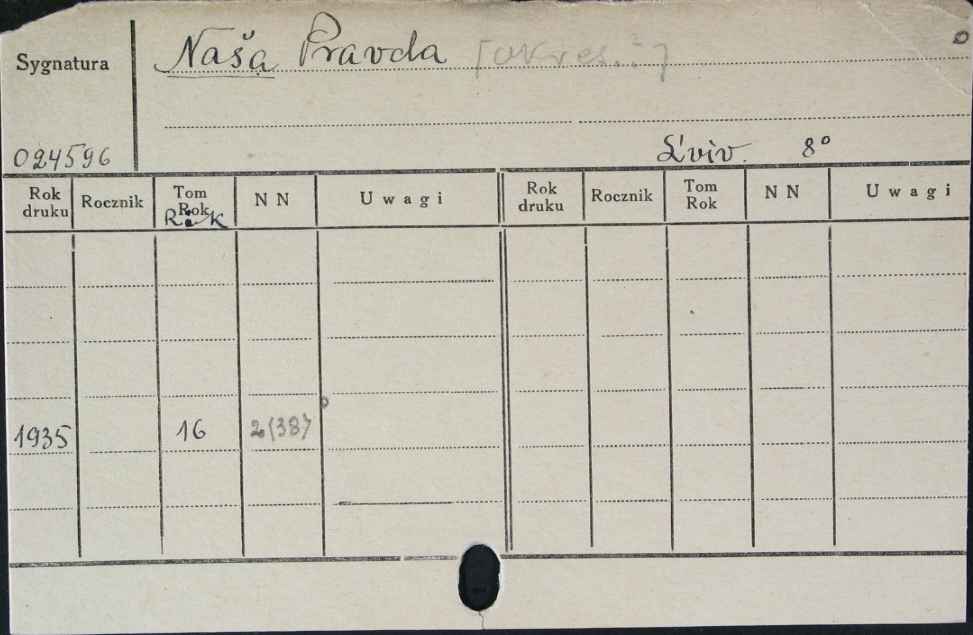 Sygnatura Naša Pravda [okres.?]
024596 L'viv. 8°
Rok druku Rocznik Tom Rok Rok N N Uwagi Rok druku Rocznik Tom Rok N N Uwagi
1935 16 2(38)